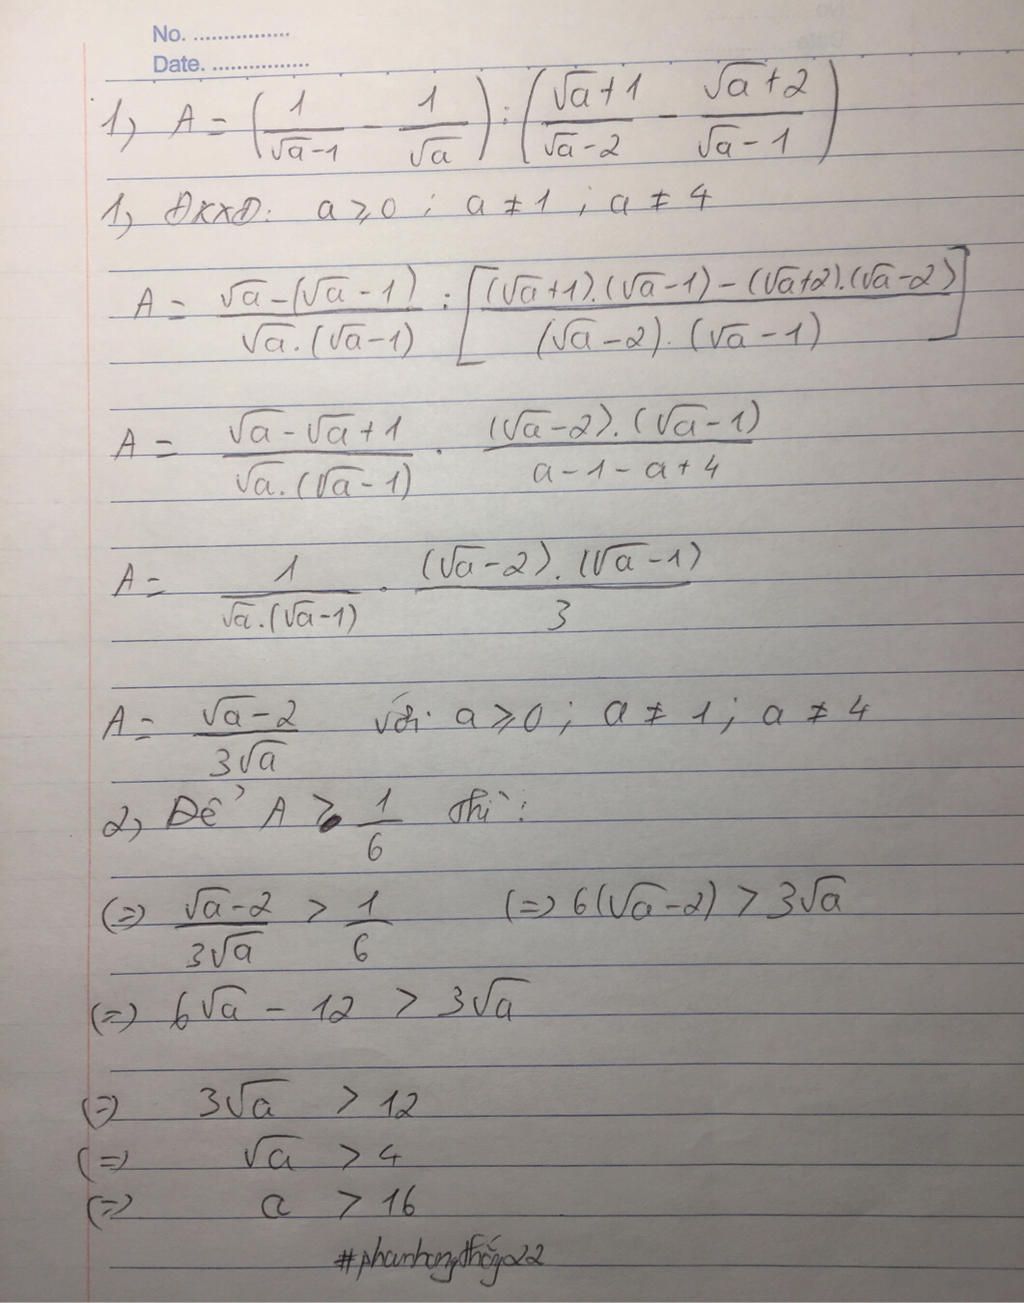 No. ................
Date. ................
1, A = (1/(√a-1) - 1/√a) : ((√a+1)/(√a-2) - (√a+2)/(√a-1))
1, ĐKXĐ: a ⩾ 0 ; a ≠ 1 ; a ≠ 4
A = (√a-(√a-1))/(√a.(√a-1)) : [((√a+1).(√a-1)-(√a+2).(√a-2))/((√a-2).(√a-1))]
A = (√a-√a+1)/(√a.(√a-1)) . ((√a-2).(√a-1))/(a-1-a+4)
A = 1/(√a.(√a-1)) . ((√a-2).(√a-1))/3
A = (√a-2)/(3√a) với a ⩾ 0 ; a ≠ 1 ; a ≠ 4
2, Để A > 1/6 thì :
(=) (√a-2)/(3√a) > 1/6 (=) 6(√a-2) > 3√a
(=) 6√a - 12 > 3√a
(=) 3√a > 12
(=) √a > 4
(=) a > 16